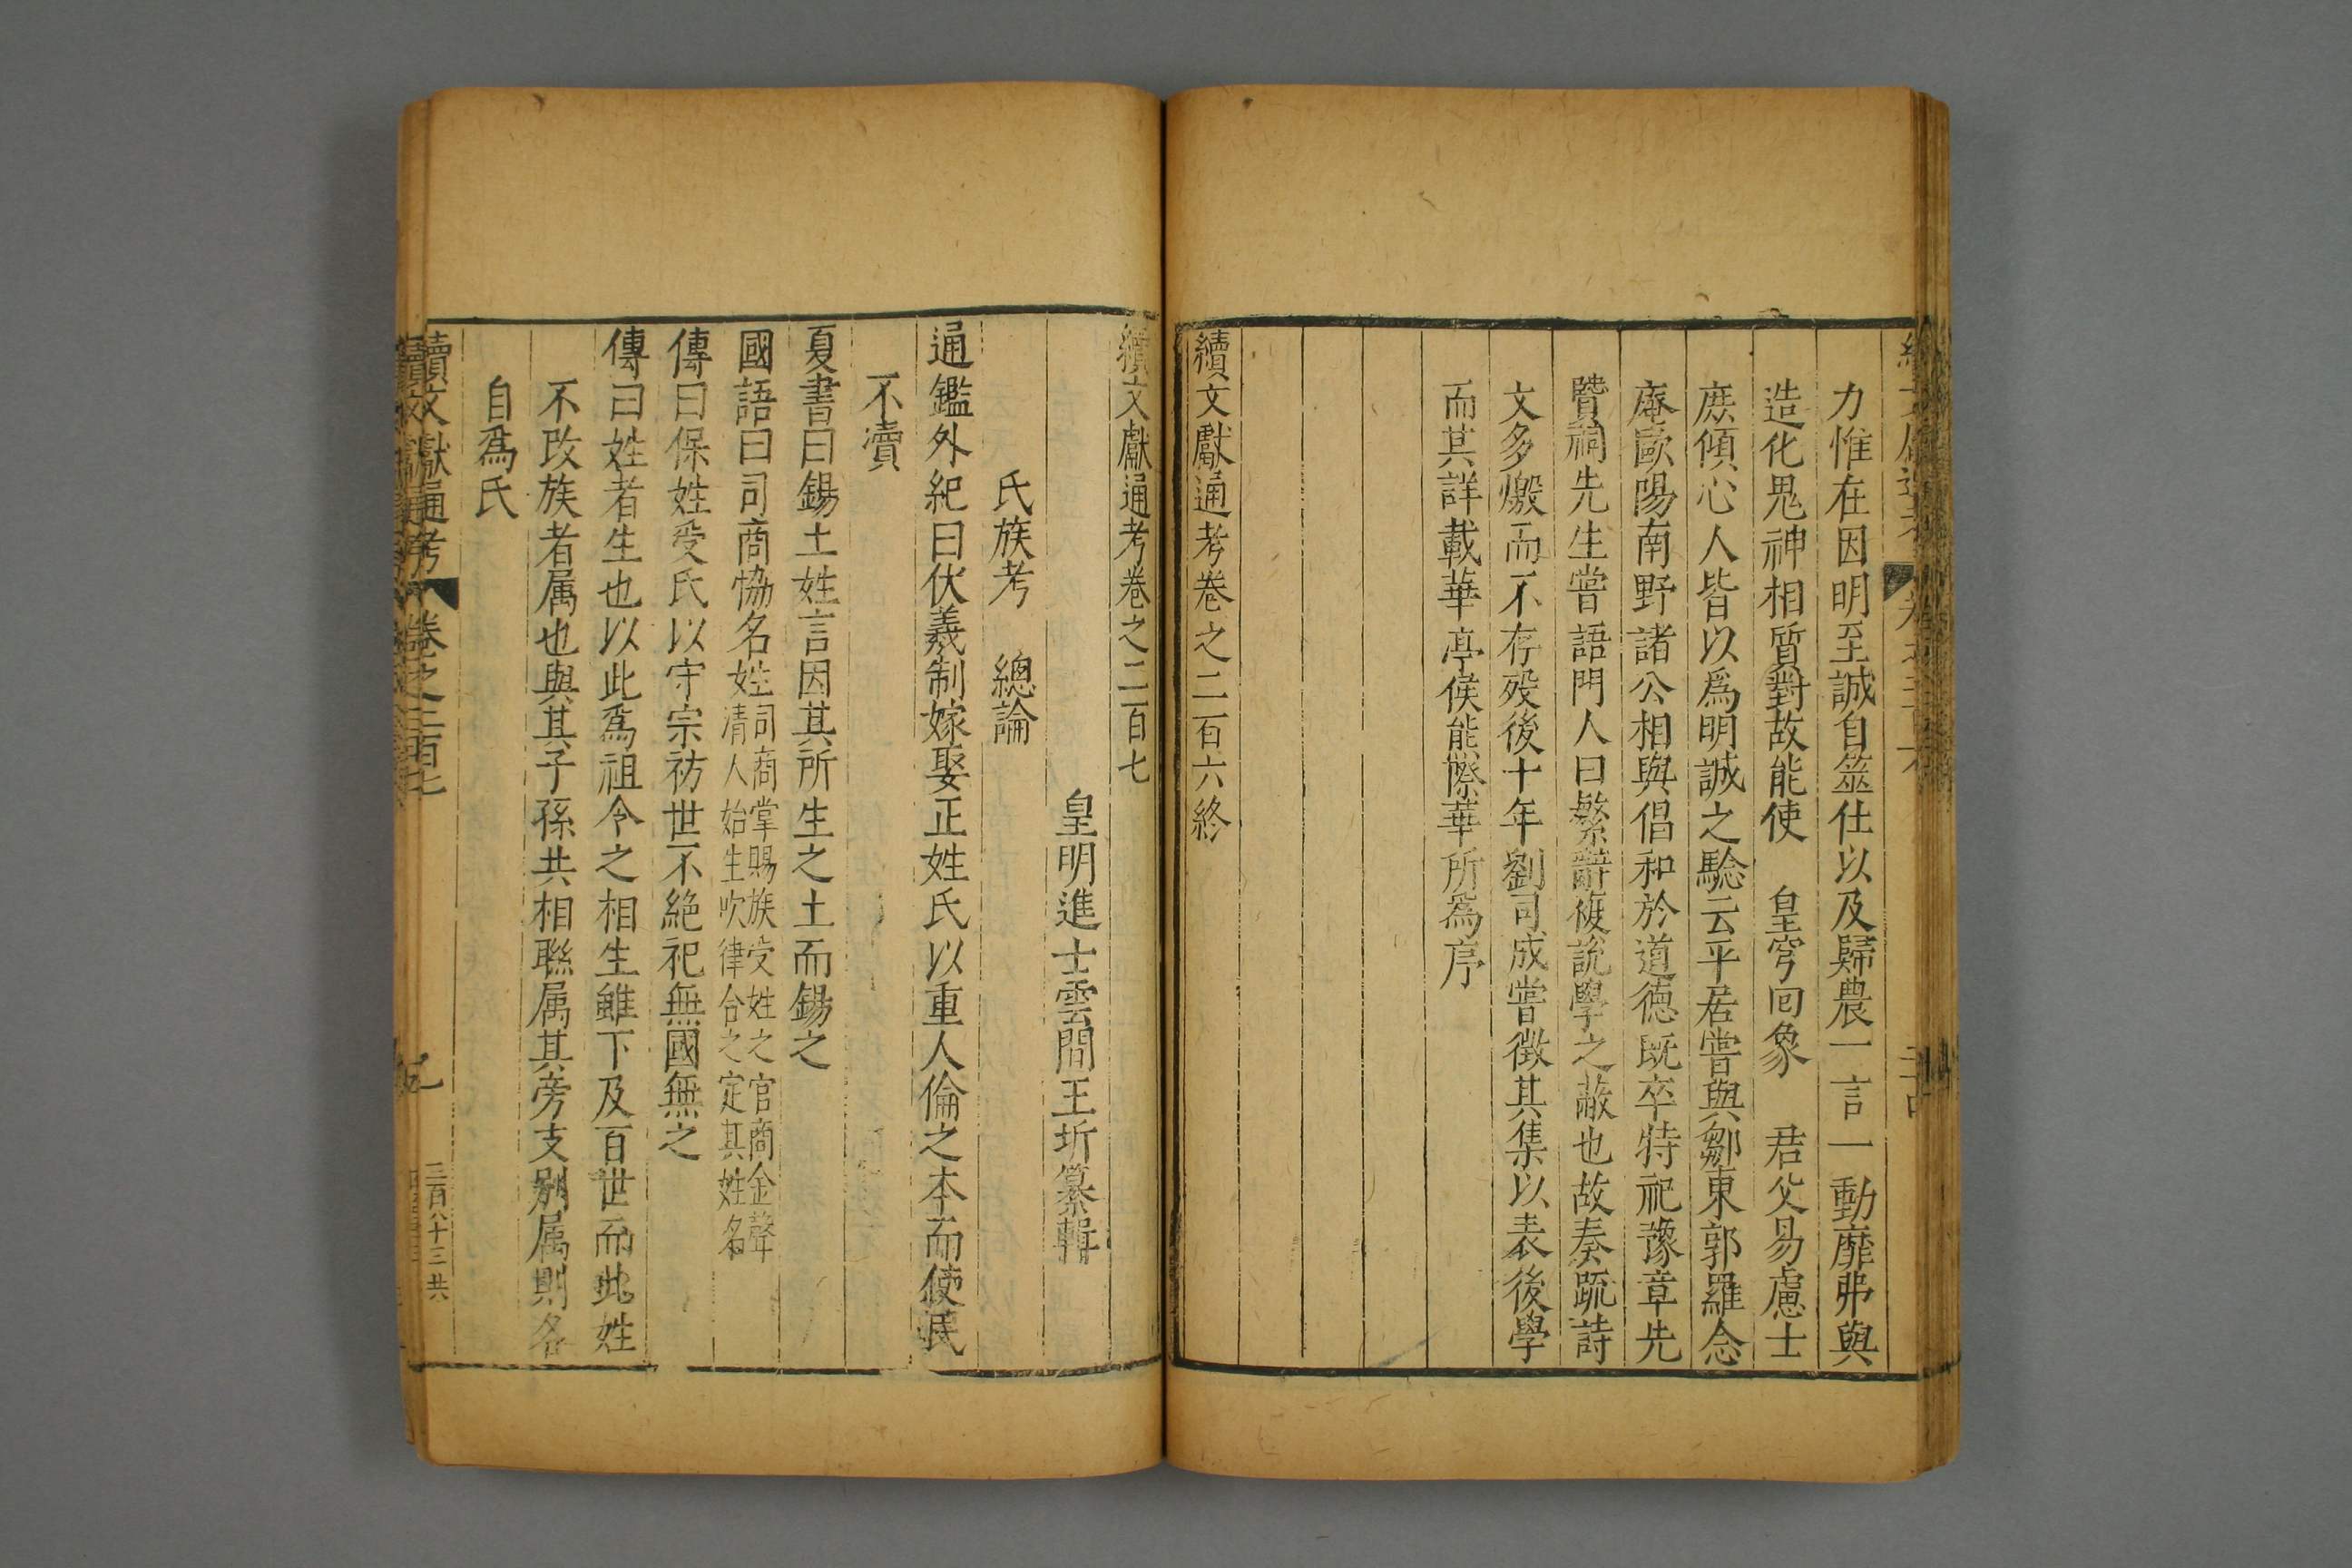 力惟在因明至誠自筮仕以及歸農一言一動靡弗與
造化鬼神相質對故能使　皇穹囘象　君父易慮士
庶傾心人皆以爲明誠之騐云平居嘗與鄒東郭羅念
庵歐陽南野諸公相與倡和於道德既卒特祀豫章先
賢祠先生嘗語門人曰繁辭複說學之蔽也故奏疏詩
文多燬而不存殁後十年劉司成嘗徵其集以表後學
而其詳載華亭侯能際華所爲序
續文獻通考卷之二百六終
續文獻通考卷之二百七
皇明進士雲間王圻纂輯
氏族考　總論
通鑑外紀曰伏羲制嫁娶正姓氏以重人倫之本而使民
不瀆
夏書曰錫土姓言因其所生之土而錫之
國語曰司商恊名姓司商掌賜族受姓之官商金聲
清人始生吹律合之定其姓名
傳曰保姓受氏以守宗祊世不絶祀無國無之
傳曰姓者生也以此爲祖令之相生雖下及百世而此姓
不改族者属也與其子孫共相聯属其旁支别属則各
自爲氏
續文獻通考　卷之二百七
三百八十三　共